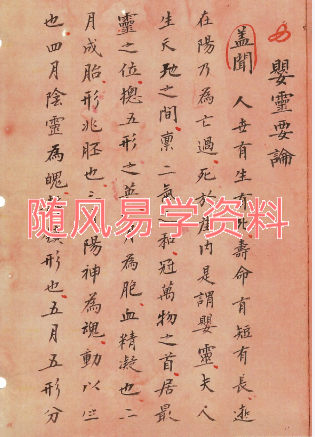 嬰靈要論
蓋聞人世有生有死壽命有短有長逝
在陽乃為亡過死於產內是謂嬰靈夫人
生天地之間禀二氣和冠萬物之首居最
靈之位總五形之英為胞血精凝也二
月成胎形兆胚也三陽神為魂動以生
也四月陰靈為魄形也五月五形分
随风易学资料